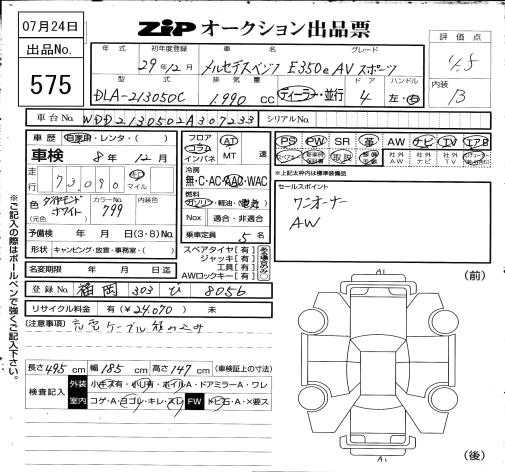 07月24日
ZIP オークション出品票
出品No.
575
評価点
4.5
内装
B
年式 初年度登録 車名 グレード
29年12月 メルセデスベンツ E350e AVスポーツ
型式 排気量 ドア ハンドル
DLA-213050C 1,990 cc ディーラー・並行 4 左・右
車台No. WDD2130502A307233 シリアルNo.
車歴 自家用・レンタ・( )
車検 8年 12月
走行 73,090 km マイル
色(元色) ダイヤモンドホワイト カラーNo. 799 内装色
予備検 年 月 日(3・8)No.
形状 キャンピング・放宣・事務室・( )
名変期限 年 月 日迄
フロア コラム インパネ AT MT 速
冷房 無・C・AC・AAC・WAC
燃料 ガソリン・軽油・(電気)
Nox 適合・非適合
乗車定員 5名
スペアタイヤ[有]
ジャッキ[有]
工具[有]
AWロックキー[有]
PS PW SR 革 AW ナビ TV エアB
取説 社外AW 社外ナビ
※上記太枠内は標準装備品
セールスポイント
ワンオーナー
AW
登録No. 福岡 303 ひ 8056
リサイクル料金 有(¥24,070) 無
(注意事項) 充電ケーブル積み込み
長さ495cm 幅185cm 高さ147cm (車検証上の寸法)
検査記入 外装 小キズ有・小凹有・ホイルA・ドアミラーA・ワレ
室内 コゲ・A・ヨゴレ・キレ・スレ FW トビ石・A・×要ス
※ご記入の際はボールペンで強くご記入下さい。
(前)
A1
A1
(後)